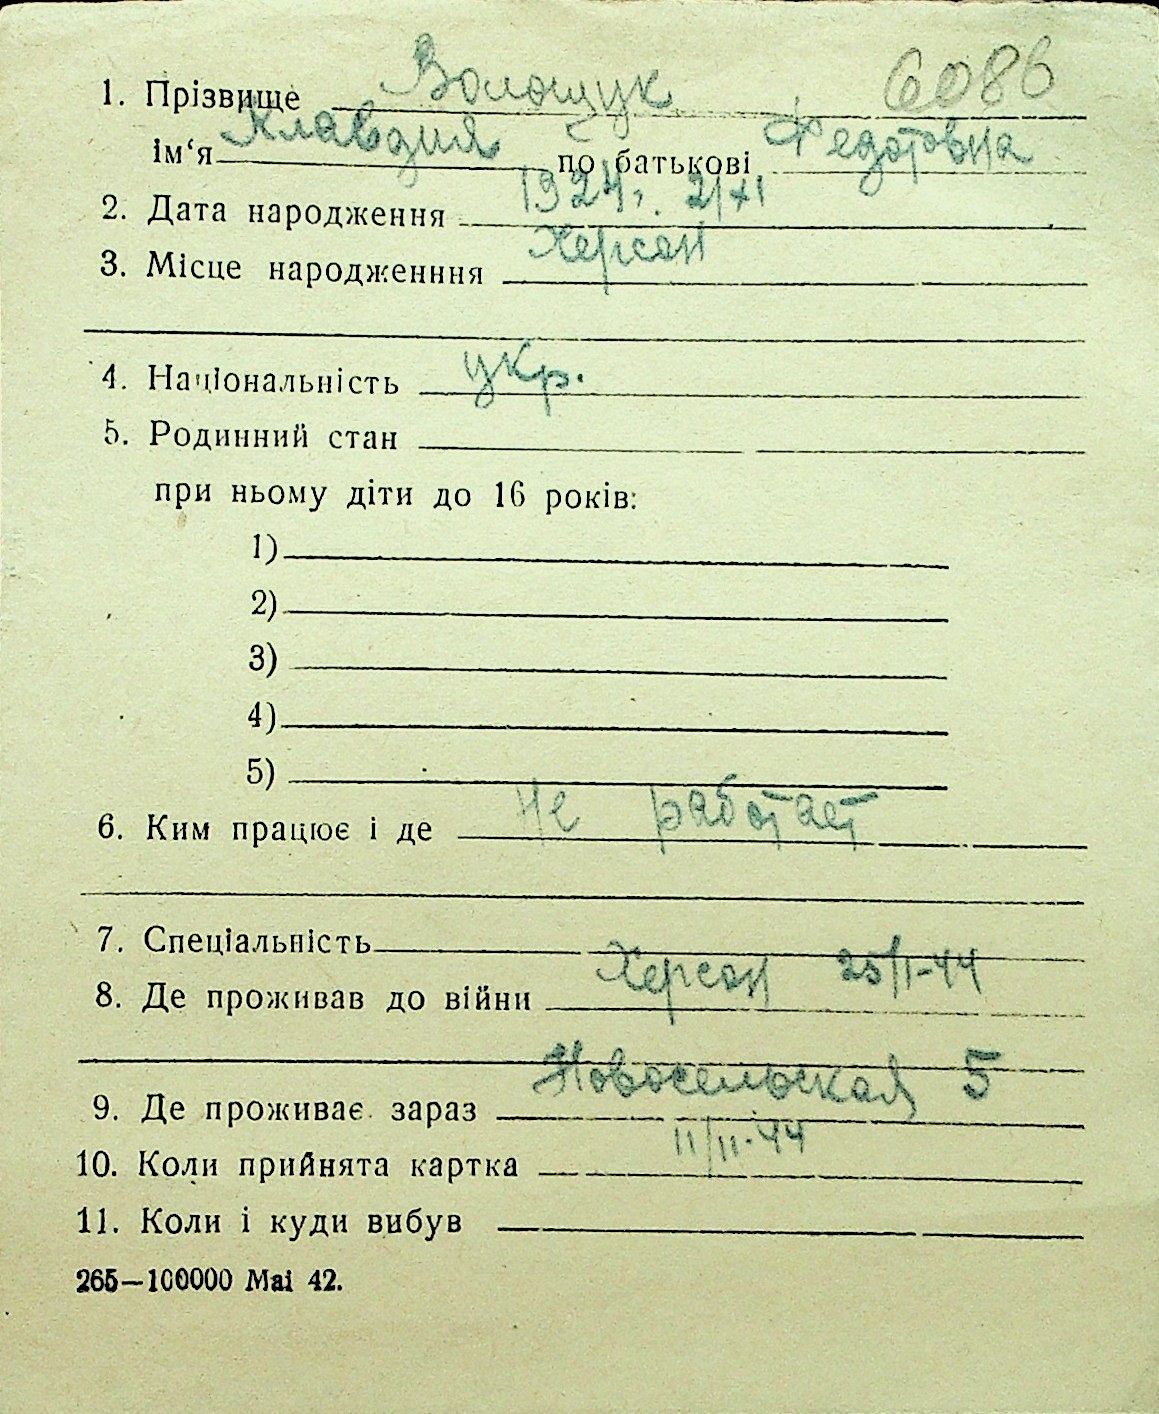 6086
1. Прізвище Волощук
ім‘я Клавдия по батькові Федотовна
2. Дата народження 1924г. 2/XI
3. Місце народженння Херсон
4. Національність укр.
5. Родинний стан
при ньому діти до 16 років:
1)
2)
3)
4)
5)
6. Ким працює і де Не работает
7. Спеціальність
8. Де проживав до війни Херсон 25/II-44
9. Де проживає зараз Новосельская 5
10. Коли прийнята картка 11/II-44
11. Коли і куди вибув
265—100000 Mai 42.